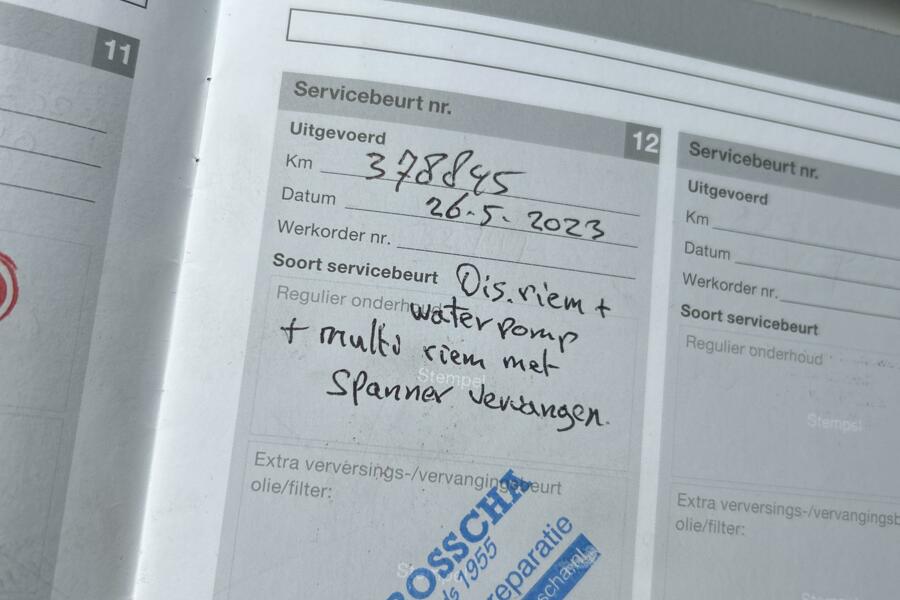 11
Servicebeurt nr.
12
Uitgevoerd
Km 378845
Datum 26-5-2023
Werkorder nr.
Soort servicebeurt Dis.riem +
Regulier onderhoud waterpomp
+ multi riem met
Stempel
Spanner vervangen.
Extra verversings-/vervangingsbeurt
olie/filter:
OSSCHA
1955
reparatie
scha.nl
Servicebeurt nr.
Uitgevoerd
Km
Datum
Werkorder nr.
Soort servicebeurt
Regulier onderhoud
Stempel
Extra verversings-/vervangingsb
olie/filter: